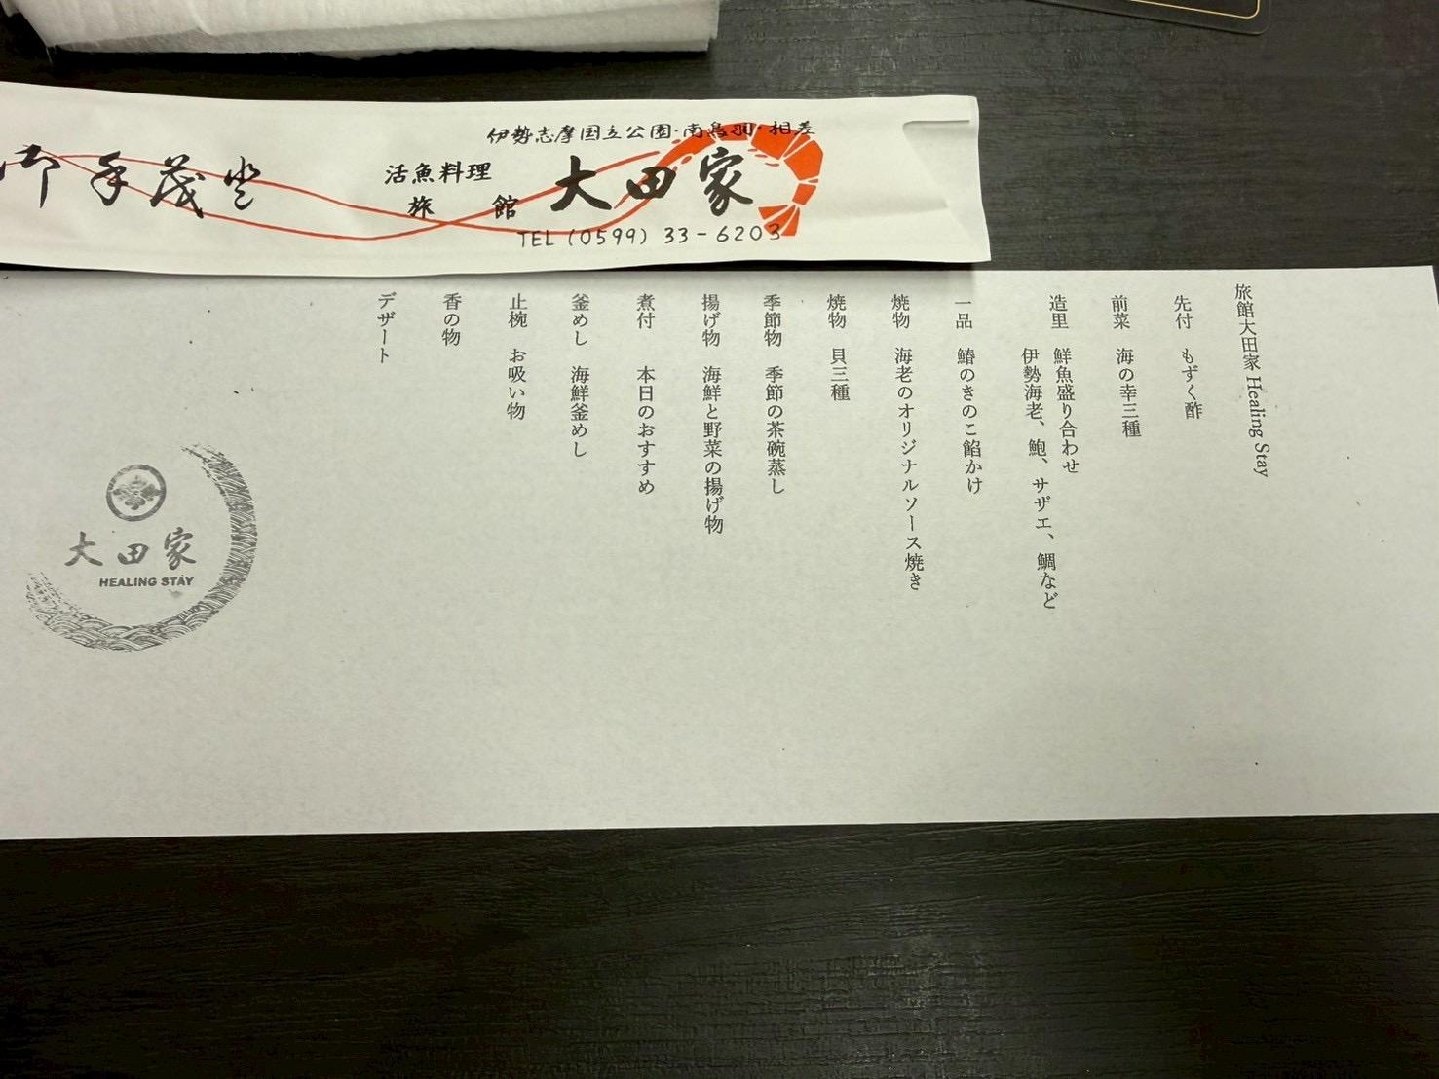 伊勢志摩国立公園・南鳥羽・相差
活魚料理
旅館
大田家
TEL (0599) 33-6203
御手茂登
旅館大田家 Healing Stay
先付 もずく酢
前菜 海の幸三種
造里 鮮魚盛り合わせ
伊勢海老、鮑、サザエ、鯛など
一品 鰆のきのこ餡かけ
焼物 海老のオリジナルソース焼き
焼物 貝三種
季節物 季節の茶碗蒸し
揚げ物 海鮮と野菜の揚げ物
煮付 本日のおすすめ
釜めし 海鮮釜めし
止椀 お吸い物
香の物
デザート
大田家
HEALING STAY